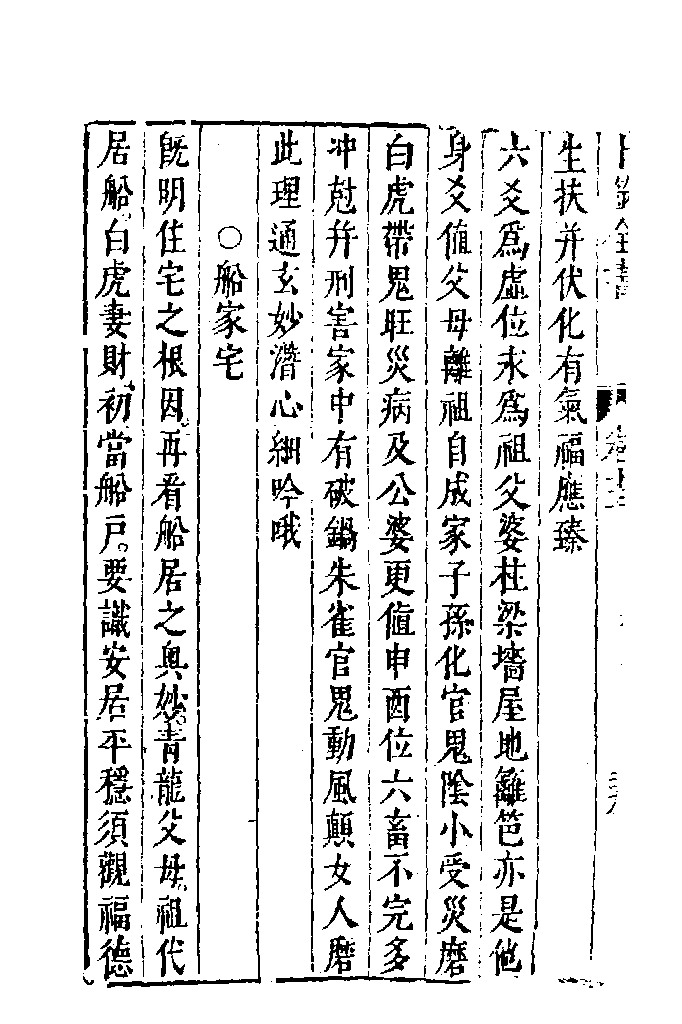 卜筮全書 卷十二
生扶并伏化有氣福應臻
六爻爲虛位永爲祖父婆柱梁墻屋地籬笆亦是他
身爻值父母離祖自成家子孫化官鬼陰小受災磨
白虎帶鬼旺災病及公婆更値申酉位六畜不完多
冲尅并刑害家中有破鍋朱雀官鬼動風顛女人磨
此理通玄妙潛心細吟哦
○船家宅
旣明住宅之根因。再看船居之奧妙。青龍父母。祖代
居船。白虎妻財。初當船戶。要識安居平穩須觀福德